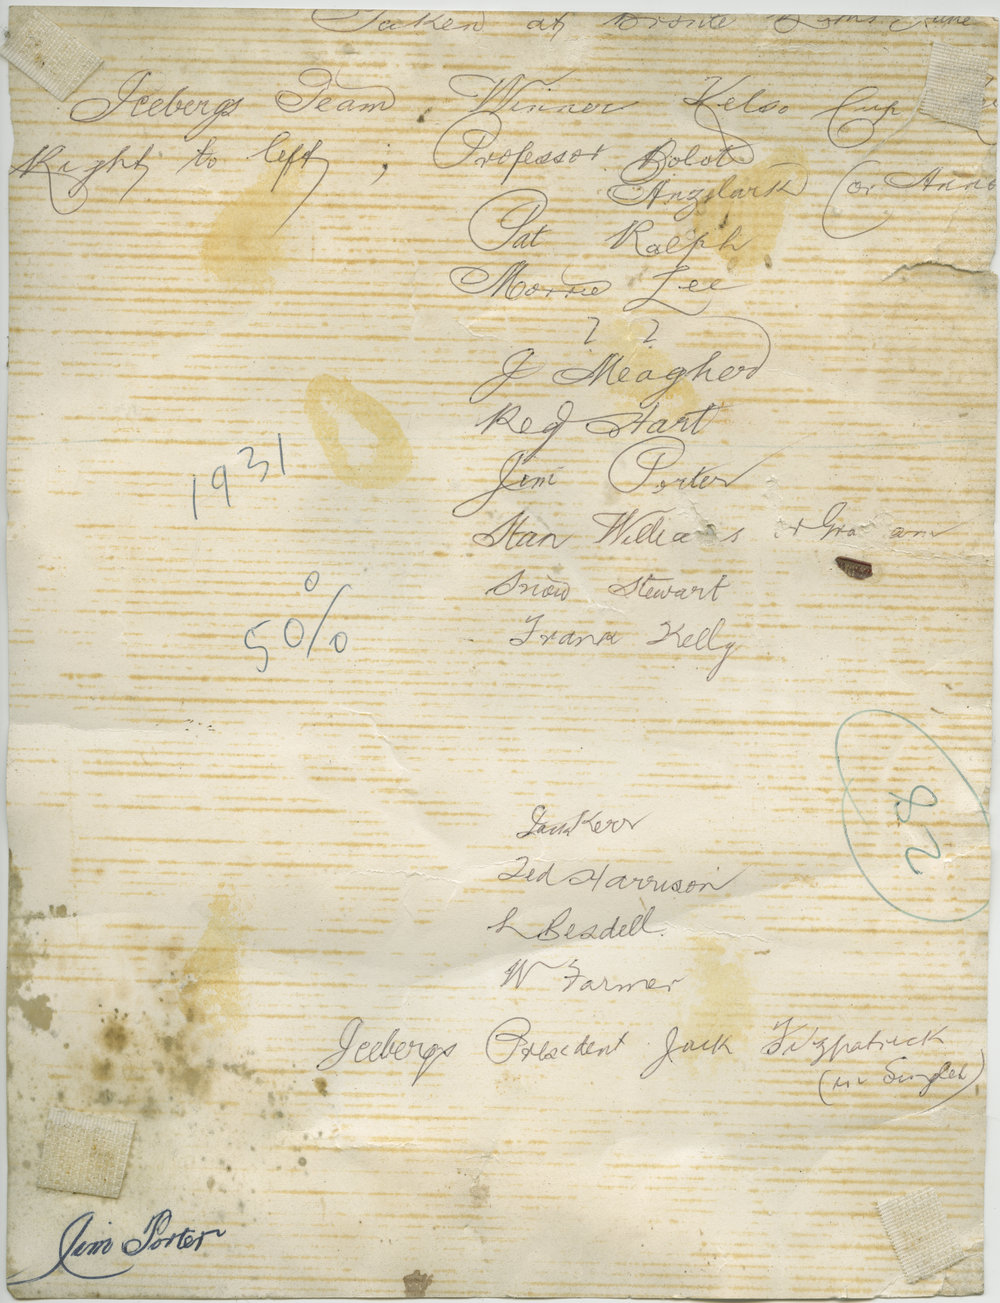 Taken at Bronte June
Icebergs Team. Winner Kelso Cup
Right to left ; Professor Bolot
Anzelark (or Anno
Pat Ralph
Morrie Lee
? ?
J Meagher
Reg Hart
Jim Porter
Stan Williams
Snow Stewart
Frank Kelly
1931
50%
28
Jack Kerr
Ted Harrison
L Besdell.
W Farmer
Icebergs President Jack Fitzpatrick
(in Singlet)
Jim Porter